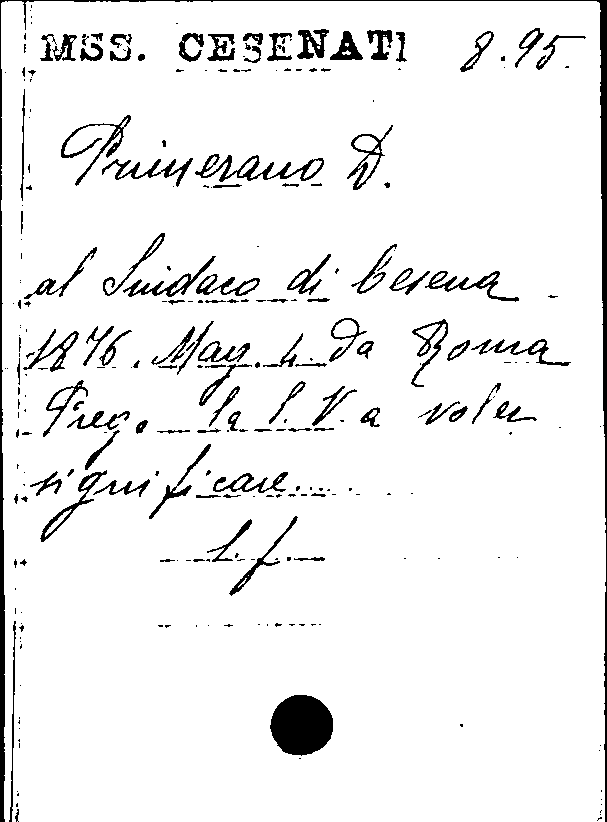 MSS. CESENATI 8.95.
Primerano D.
al Sindaco di Cesena
1876. Mag. 4. Da Roma
Prego la S. V. a voler
significare....
l. f.